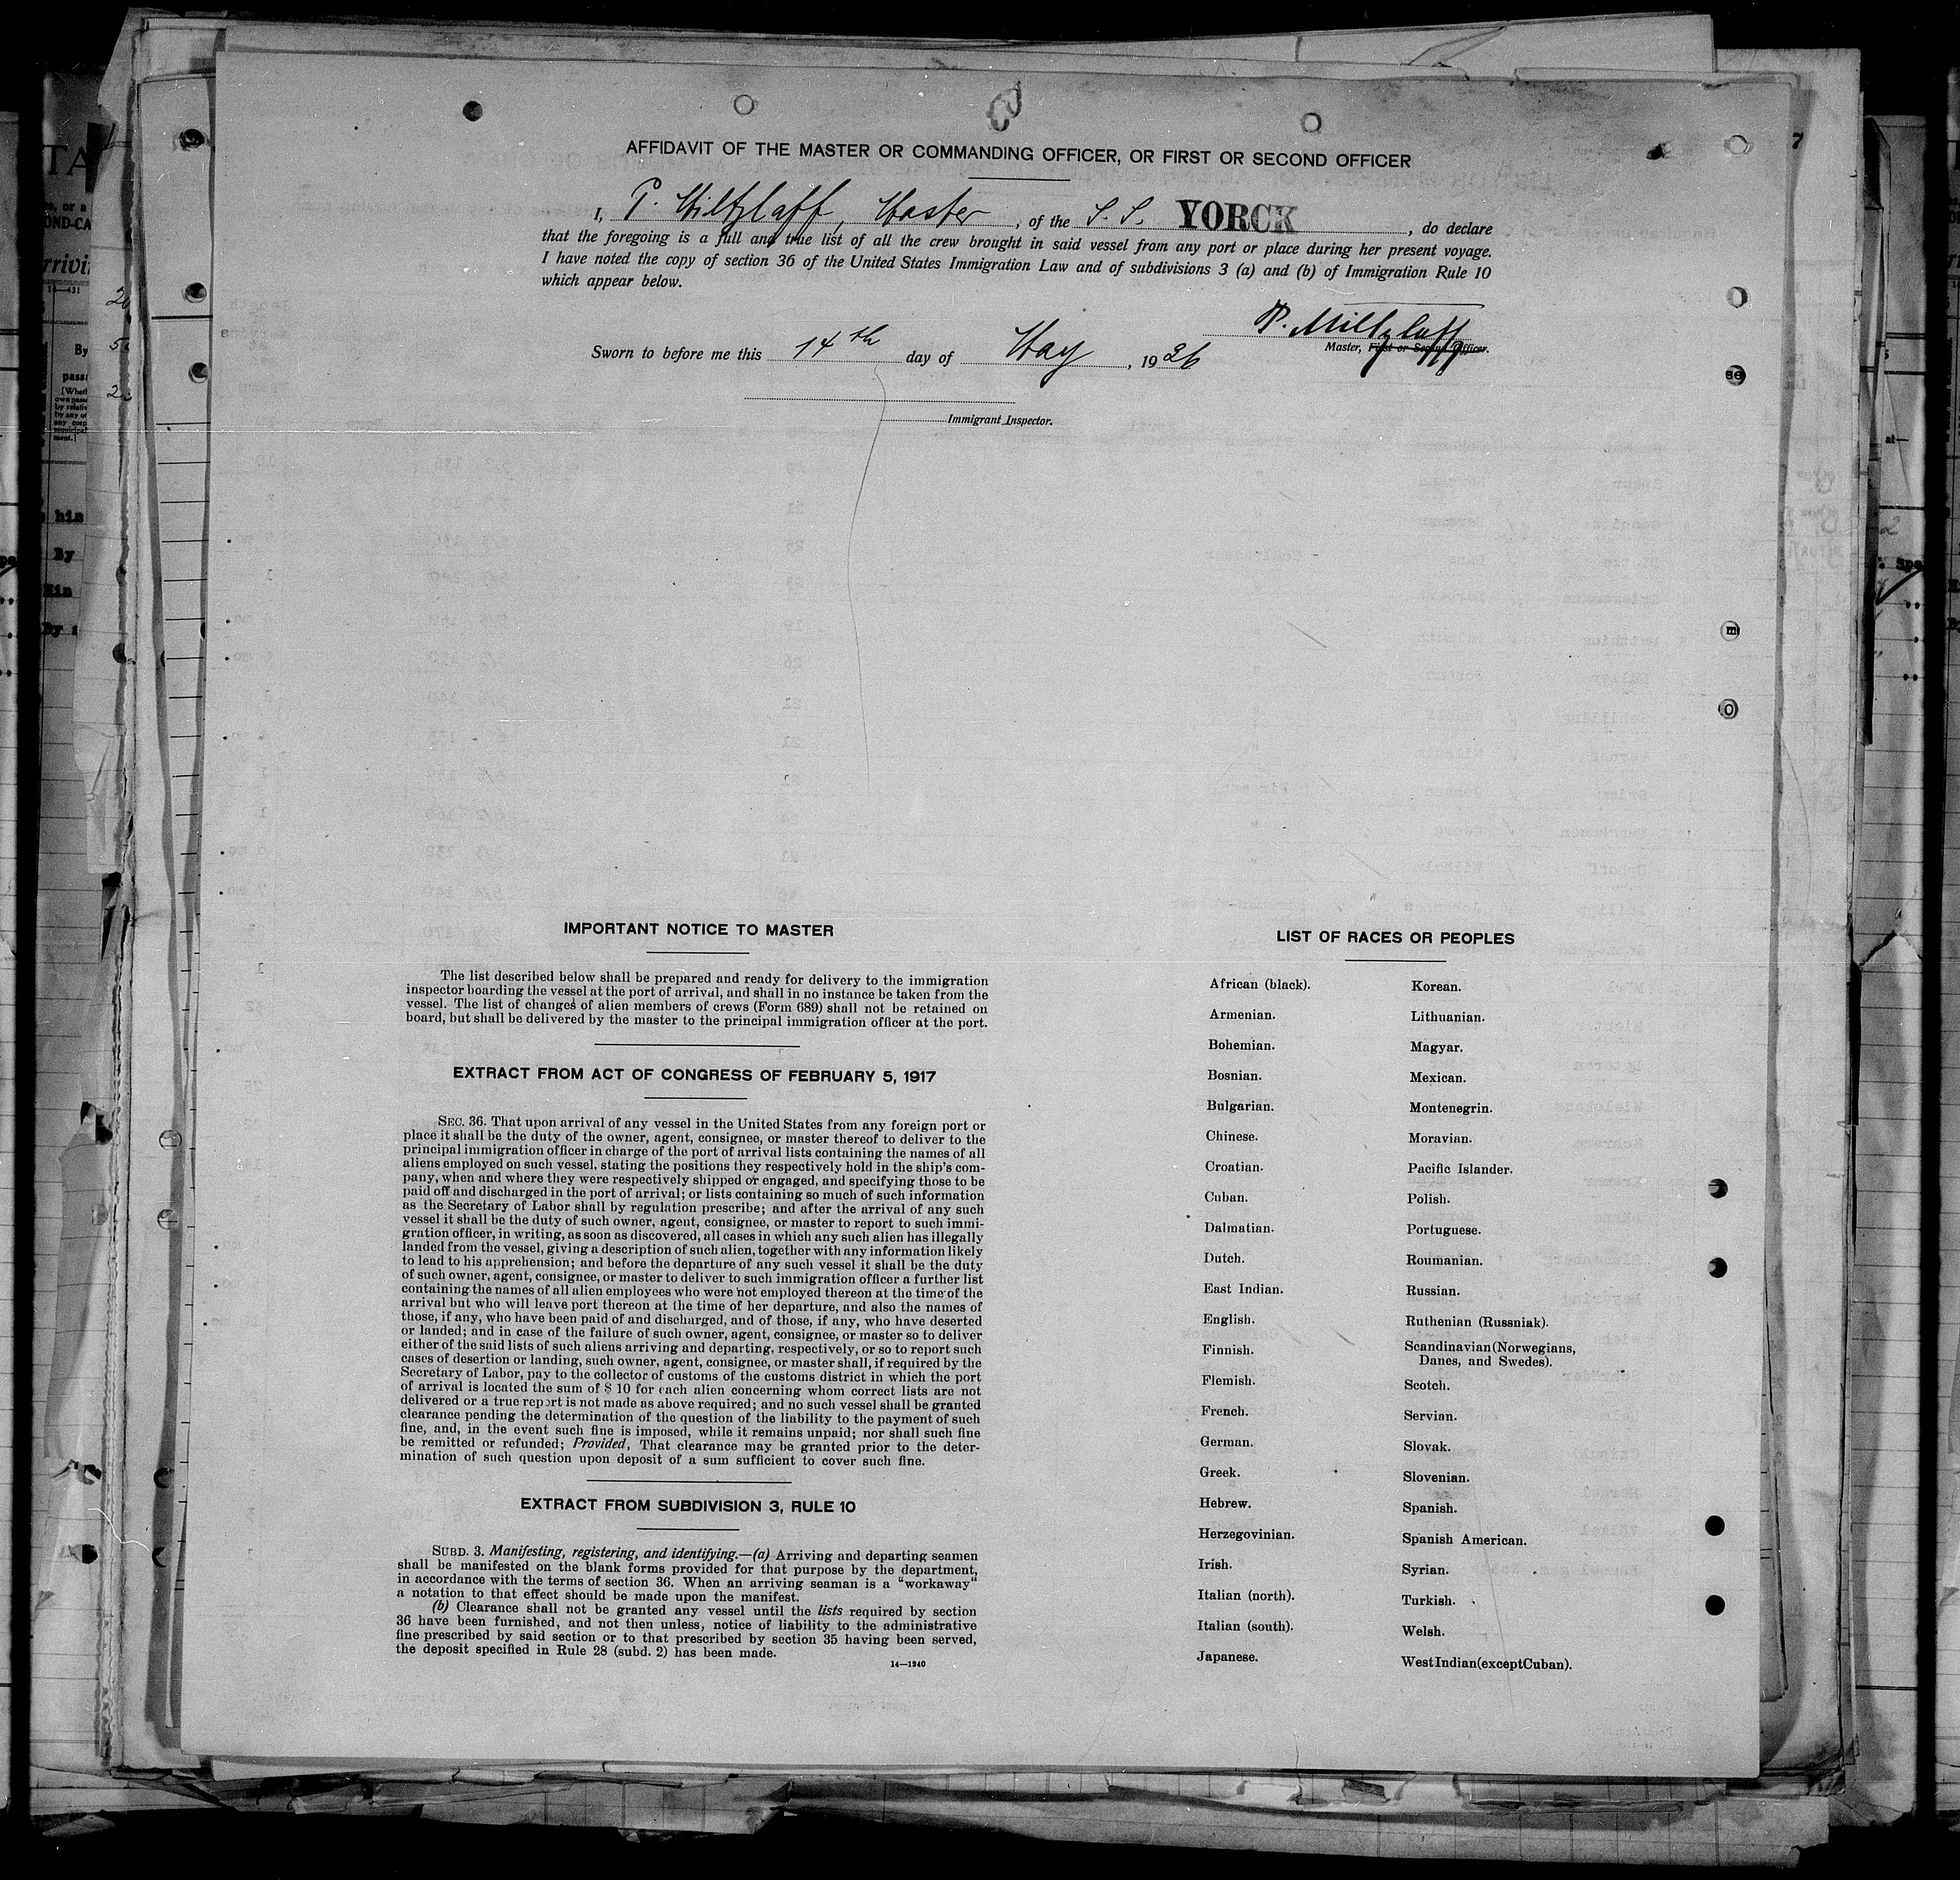 AFFIDAVIT OF THE MASTER OR COMMANDING OFFICER, OR FIRST OR SECOND OFFICER
I, P. Wiltzlaff, Master, of the S.S. YORCK, do declare
that the foregoing is a full and true list of all the crew brought in said vessel from any port or place during her present voyage.
I have noted the copy of section 36 of the United States Immigration Law and of subdivisions 3 (a) and (b) of Immigration Rule 10
which appear below.
P. Miltzlaff
Master, First or Second Officer.
Sworn to before me this 14th day of May, 1926
Immigrant Inspector.
IMPORTANT NOTICE TO MASTER
The list described below shall be prepared and ready for delivery to the immigration
inspector boarding the vessel at the port of arrival, and shall in no instance be taken from the
vessel. The list of changes of alien members of crews (Form 689) shall not be retained on
board, but shall be delivered by the master to the principal immigration officer at the port.
EXTRACT FROM ACT OF CONGRESS OF FEBRUARY 5, 1917
SEC. 36. That upon arrival of any vessel in the United States from any foreign port or
place it shall be the duty of the owner, agent, consignee, or master thereof to deliver to the
principal immigration officer in charge of the port of arrival lists containing the names of all
aliens employed on such vessel, stating the positions they respectively hold in the ship's com-
pany, when and where they were respectively shipped or engaged, and specifying those to be
paid off and discharged in the port of arrival; or lists containing so much of such information
as the Secretary of Labor shall by regulation prescribe; and after the arrival of any such
vessel it shall be the duty of such owner, agent, consignee, or master to report to such immi-
gration officer, in writing, as soon as discovered, all cases in which any such alien has illegally
landed from the vessel, giving a description of such alien, together with any information likely
to lead to his apprehension; and before the departure of any such vessel it shall be the duty
of such owner, agent, consignee, or master to deliver to such immigration officer a further list
containing the names of all alien employees who were not employed thereon at the time of the
arrival but who will leave port thereon at the time of her departure, and also the names of
those, if any, who have been paid of and discharged, and of those, if any, who have deserted
or landed; and in case of the failure of such owner, agent, consignee, or master so to deliver
either of the said lists of such aliens arriving and departing, respectively, or so to report such
cases of desertion or landing, such owner, agent, consignee, or master shall, if required by the
Secretary of Labor, pay to the collector of customs of the customs district in which the port
of arrival is located the sum of $ 10 for each alien concerning whom correct lists are not
delivered or a true report is not made as above required; and no such vessel shall be granted
clearance pending the determination of the question of the liability to the payment of such
fine, and, in the event such fine is imposed, while it remains unpaid; nor shall such fine
be remitted or refunded; Provided, That clearance may be granted prior to the deter-
mination of such question upon deposit of a sum sufficient to cover such fine.
EXTRACT FROM SUBDIVISION 3, RULE 10
SUBD. 3. Manifesting, registering, and identifying.—(a) Arriving and departing seamen
shall be manifested on the blank forms provided for that purpose by the department,
in accordance with the terms of section 36. When an arriving seaman is a "workaway"
a notation to that effect should be made upon the manifest.
(b) Clearance shall not be granted any vessel until the lists required by section
36 have been furnished, and not then unless, notice of liability to the administrative
fine prescribed by said section or to that prescribed by section 35 having been served,
the deposit specified in Rule 28 (subd. 2) has been made.
14—1240
LIST OF RACES OR PEOPLES
African (black).
Armenian.
Bohemian.
Bosnian.
Bulgarian.
Chinese.
Croatian.
Cuban.
Dalmatian.
Dutch.
East Indian.
English.
Finnish.
Flemish.
French.
German.
Greek.
Hebrew.
Herzegovinian.
Irish.
Italian (north).
Italian (south).
Japanese.
Korean.
Lithuanian.
Magyar.
Mexican.
Montenegrin.
Moravian.
Pacific Islander.
Polish.
Portuguese.
Roumanian.
Russian.
Ruthenian (Russniak).
Scandinavian (Norwegians,
Danes, and Swedes).
Scotch.
Servian.
Slovak.
Slovenian.
Spanish.
Spanish American.
Syrian.
Turkish.
Welsh.
West Indian (except Cuban).